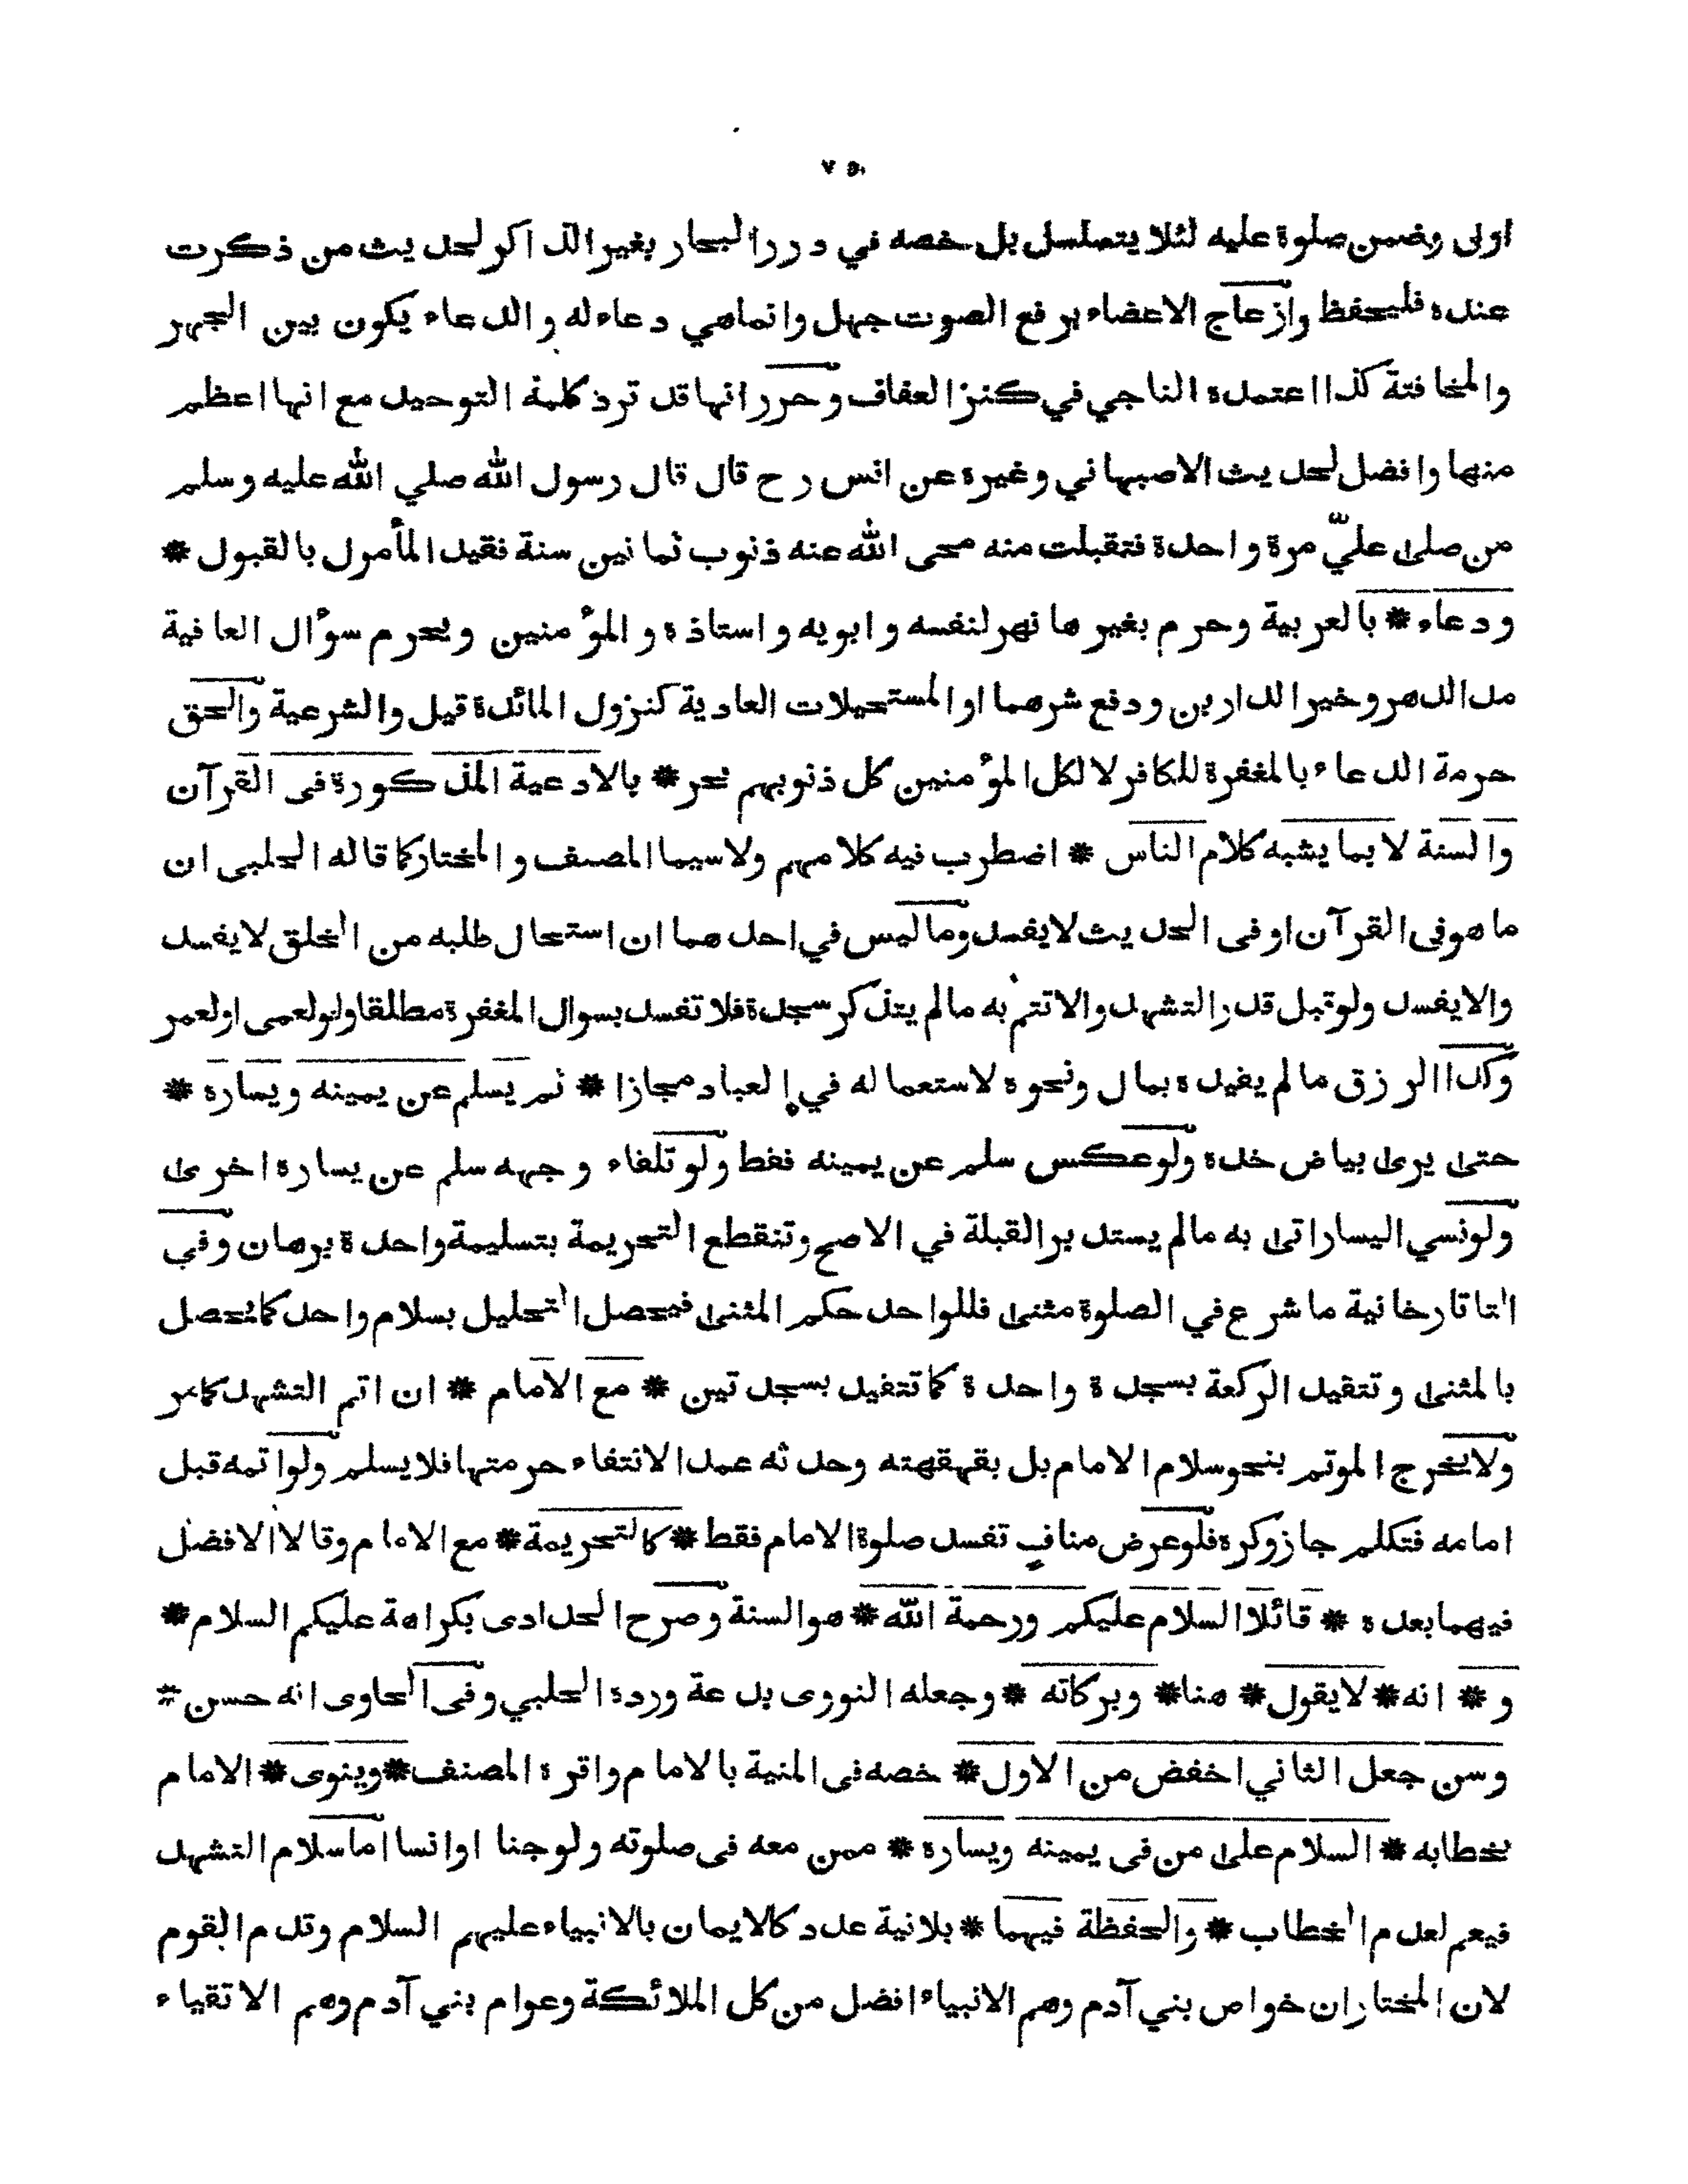 ٧٥
اولى وضمن صلوة عليه لئلا يتصلسل بل خصه في درر البحار بغير الذاكر لحديث من ذكرت
عنده فليحفظ وازعاج الاعضاء برفع الصوت جهل وانما هي دعاء له والدعاء يكون بين الجهر
والمخافتة كذا اعتمده الناجي في كنز العفاف وحرر انها قد ترد ككلمة التوحيد مع انها اعظم
منها وافضل لحديث الاصبهاني وغيره عن انس رح قال قال رسول الله صلي الله عليه وسلم
من صلى عليّ مرة واحدة فتقبلت منه محى الله عنه ذنوب ثمانين سنة فقيد المأمول بالقبول *
ودعاء * بالعربية وحرم بغيرها نهر لنفسه وابويه واستاذه والمؤمنين ويحرم سؤال العافية
مد الدهر وخير الدارين ودفع شرهما او المستحيلات العادية كنزول المائدة قيل والشرعية والحق
حرمة الدعاء بالمغفرة للكافر لا لكل المؤمنين كل ذنوبهم بحر * بالادعية المذكورة فى القرآن
والسنة لا بما يشبه كلام الناس * اضطرب فيه كلامهم ولاسيما المصنف والمختار كما قاله الحلبى ان
ما هو فى القرآن او فى الحديث لا يفسد وما ليس في احدهما ان استحال طلبه من الخلق لا يفسد
والا يفسد ولو قبل قدر التشهد والا تتم به ما لم يتذكر سجدة فلا تفسد بسوال المغفرة مطلقا ولو لعمى او لعمر
وكذا الرزق ما لم يقيده بمال ونحوه لاستعماله في العباد مجازا * ثم يسلم عن يمينه ويساره *
حتى يرى بياض خده ولو عكس سلم عن يمينه فقط ولو تلقاء وجهه سلم عن يساره اخرى
ولو نسي اليسار اتى به ما لم يستدبر القبلة في الاصح وتنقطع التحريمة بتسليمة واحدة برهان وفي
التاتارخانية ما شرع في الصلوة مثنى فللواحد حكم المثنى فيحصل التحليل بسلام واحد كما يحصل
بالمثنى وتتقيد الركعة بسجدة واحدة كما تتقيد بسجدتين * مع الامام * ان اتم التشهد كما مر
ولا يخرج الموتم بنحو سلام الامام بل بقهقهته وحدثه عمدا لانتفاء حرمتها فلا يسلم ولو اتمه قبل
امامه فتكلم جاز وكره فلو عرض منافٍ تفسد صلوة الامام فقط * كالتحريمة * مع الامام وقالا الافضل
فيهما بعده * قائلا السلام عليكم ورحمة الله * هو السنة وصرح الحدادى بكراهة عليكم السلام *
و * انه * لا يقول * هنا * وبركاته * وجعله النووى بدعة ورده الحلبي وفى الحاوى انه حسن *
وسن جعل الثاني اخفض من الاول * خصه فى المنية بالامام واقره المصنف * وينوى * الامام
بخطابه * السلام على من فى يمينه ويساره * ممن معه فى صلوته ولو جنا او انسا اما سلام التشهد
فيعم لعدم الخطاب * والحفظة فيهما * بلا نية عدد كالايمان بالانبياء عليهم السلام وقدم القوم
لان المختار ان خواص بني آدم وهم الانبياء افضل من كل الملائكة وعوام بني آدم وهم الاتقياء